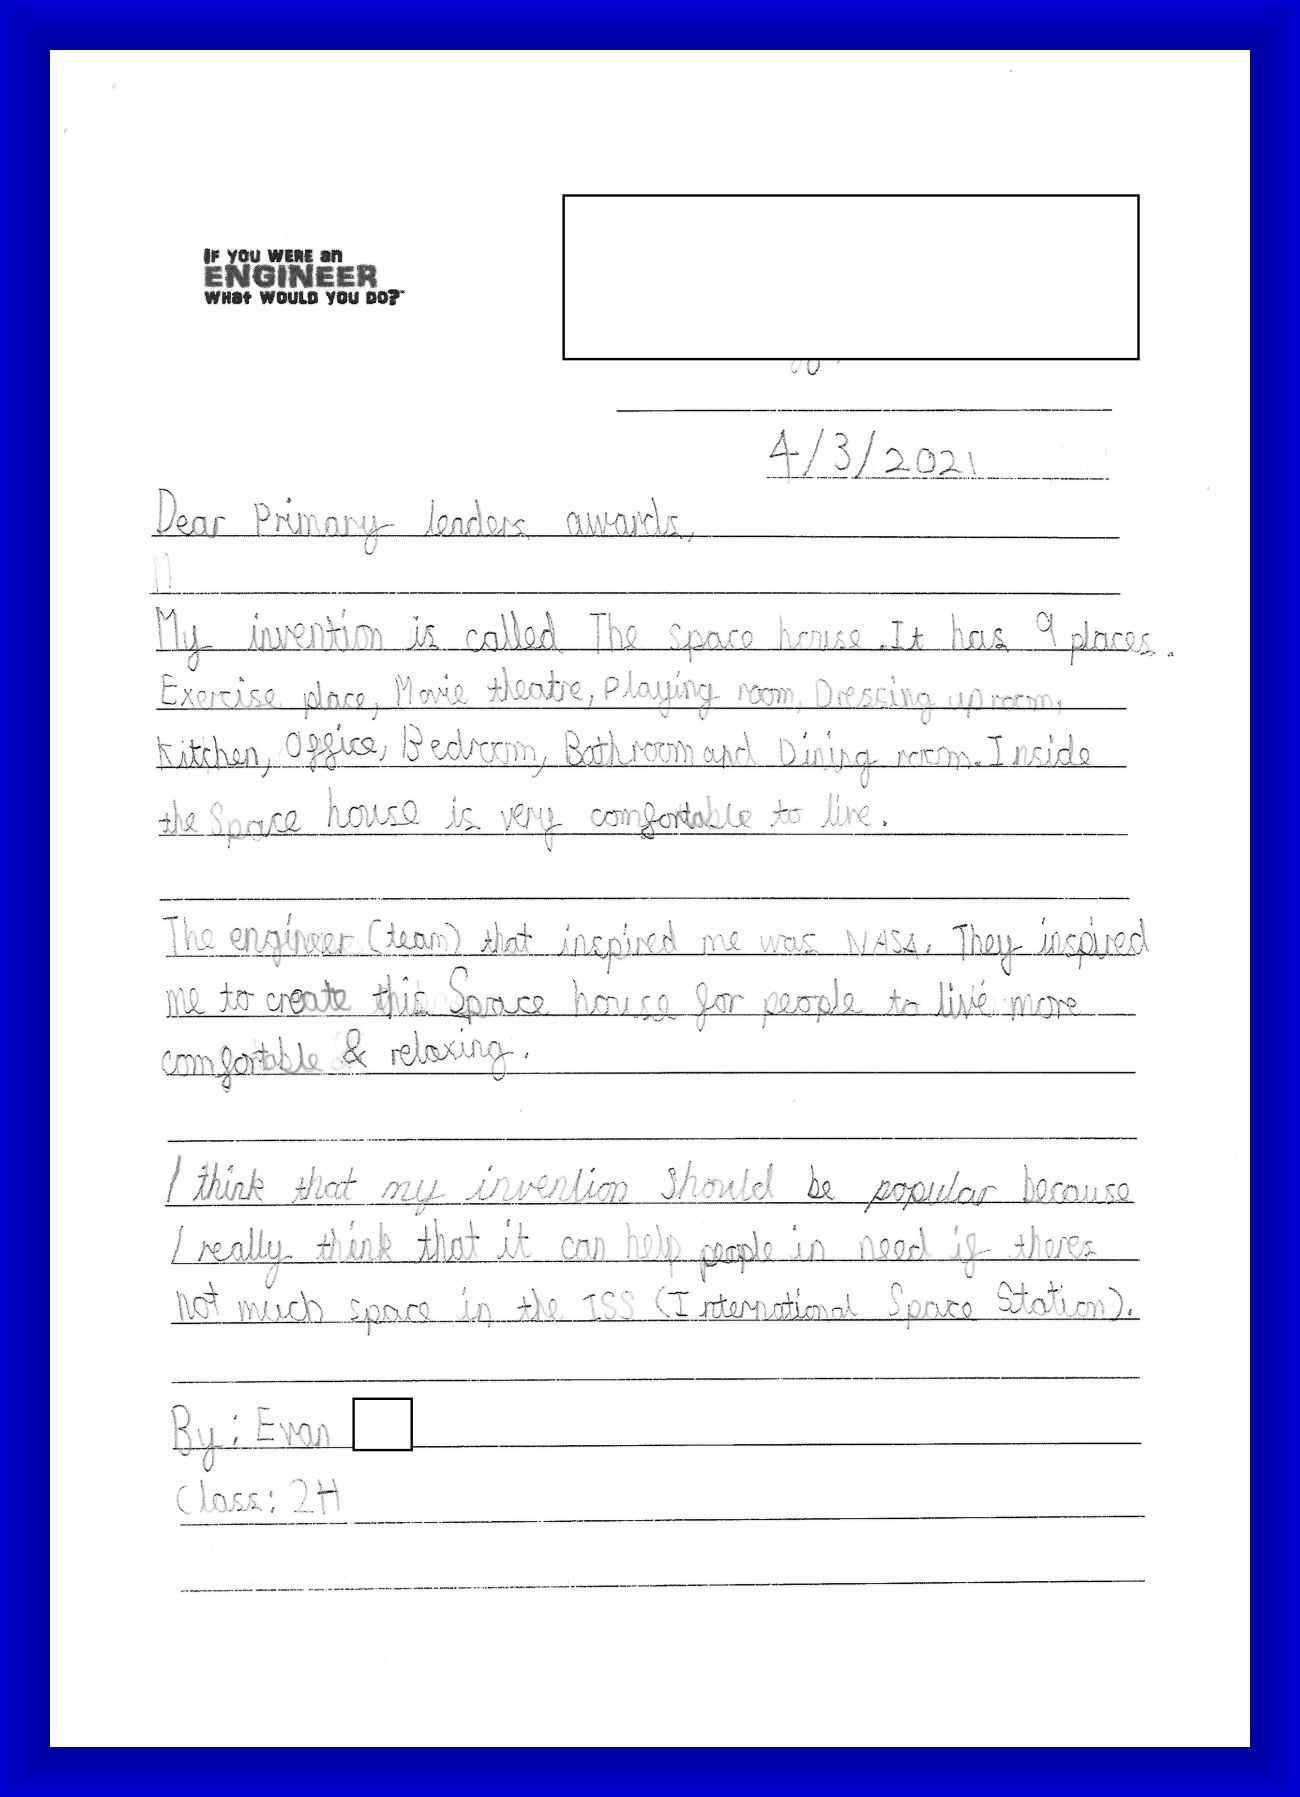 IF YOU WERE an
ENGINEER
WHat WOULD YOU DO?™
4/3/2021
Dear Primary leaders awards,
M
My invention is called The space house. It has 9 places.
Exercise place, Movie theatre, Playing room, Dressing up room,
Kitchen, Office, Bedroom, Bathroom and Dining room. Inside
the Space house is very comfortable to live.
The engineer (team) that inspired me was NASA. They inspired
me to create this Space house for people to live more
comfortable & relaxing.
I think that my invention should be popular because
I really think that it can help people in need if theres
not much space in the ISS (International Space Station).
By: Evan
Class: 2H